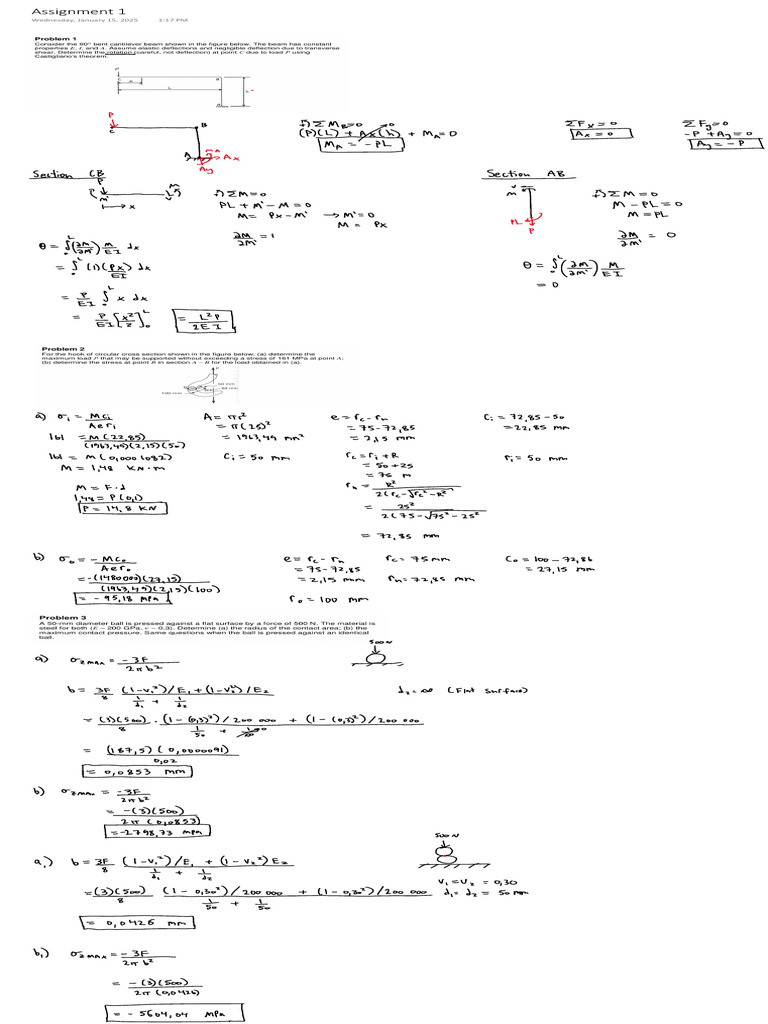 Assignment 1
Wednesday, January 15, 2025 1:17 PM
Problem 1
Consider the 90° bent cantilever beam shown in the figure below. The beam has constant
properties E, I, and A. Assume elastic deflections and negligible deflection due to transverse
shear. Determine the rotation (careful, not deflection) at point C due to load P using
Castigliano's theorem.
P
L
B
P
C
B
A
Ax
Ay
ΣM_B=0
(P)(L) + Ax(h) + M_A=0
0
M_A = -PL
ΣFx=0
Ax = 0
ΣFy=0
-P + Ay=0
Ay = -P
Section CB
P
M'
→ x
M
V
ΣM=0
PL + M' - M=0
M= Px-M' → M'=0
M= Px
∂M/∂M' = 1
θ = ∫₀ᴸ (∂M/∂M') M/EI dx
= ∫₀ᴸ (1)(Px)/EI dx
= P/EI ∫₀ᴸ x dx
= P/EI [x²/2]₀ᴸ = L²P/2EI
Section AB
V
M
PL
P
ΣM=0
M - PL=0
M=PL
∂M/∂M' = 0
θ = ∫₀ᴸ (∂M/∂M') M/EI
= 0
Problem 2
For the hook of circular cross section shown in the figure below, (a) determine the
maximum load P that may be supported without exceeding a stress of 161 MPa at point A;
(b) determine the stress at point B in section A – B for the load obtained in (a).
P
50 mm
a) σi = Mci/Aeri
161 = M(22,85)/(1963,49)(2,15)(50)
161 = M(0,0001082)
M = 1,48 KN·m
M = F·d
1,48 = P(0,1)
P = 14,8 KN
A= πr²
= π(25)²
= 1963,49 mm²
Ci = 50 mm
e = rc - rn
= 75-72,85
= 2,15 mm
rc = ri + R
= 50+25
= 75 m
rn = R²/2(rc-√rc²-R²)
= 25²/2(75-√75²-25²)
= 72,85 mm
Ci = 72,85-50
= 22,85 mm
ri = 50 mm
b) σo = -Mco/Aero
= -(1480000)(27,15)/(1963,45)(2,15)(100)
= -95,18 MPa
e = rc - rn
= 75-72,85
= 2,15 mm
ro = 100 mm
rc = 75 mm
rn = 72,85 mm
Co = 100 - 72,86
= 27,15 mm
Problem 3
A 50-mm diameter ball is pressed against a flat surface by a force of 500 N. The material is
steel for both (E = 200 GPa, ν = 0.3). Determine (a) the radius of the contact area; (b) the
maximum contact pressure. Same questions when the ball is pressed against an identical
ball.
500 N
a) σz max = -3F/2πb²
b = 3F/8 (1-V₁²)/E₁ + (1-V₂²)/E₂ / 1/d₁ + 1/d₂
d₂ = ∞ (Flat surface)
= (3)(500)/8 · (1-(0,3)²)/200 000 + (1-(0,3)²)/200 000 / 1/50 + 1/∞
= (187,5)(0,0000091)/0,02
= 0,0853 mm
b) σz max = -3F/2πb²
= -(3)(500)/2π(0,0853)
= -2798,73 MPa
500 N
a₁) b = 3F/8 (1-V₁²)/E₁ + (1-V₂²)E₂ / 1/d₁ + 1/d₂
V₁ = V₂ = 0,30
d₁ = d₂ = 50 mm
= (3)(500)/8 (1-0,30²)/200 000 + (1-0,30²)/200 000 / 1/50 + 1/50
= 0,0426 mm
b₁) σz max = -3F/2πb²
= -(3)(500)/2π(0,0426)
= -5604,04 MPa